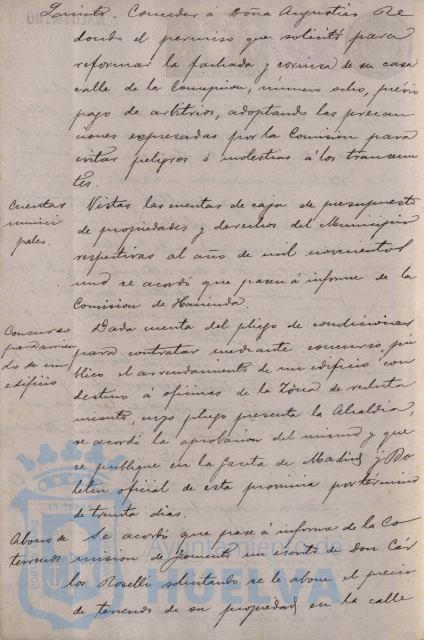 Quinto. Conceder á Doña Augustias Re
dondo el permiso que solicitó para
reformar la fachada y cornisa de su casa
calle de la Concepcion, número ocho, prévio
pago de arbitrios, adoptando las precau
ciones expresadas por la Comisión para
evitar peligros ó molestias á los transeun
tes.
Cuentas
munici
pales.
Vistas las cuentas de caja de presupuesto
de propiedades y derechos del Municipio
respectivas al año de mil novecientos
uno se acordó que pasen á informe de la
Comision de Hacienda.
Concurso
para arrien
do de un
edificio
Dada cuenta del pliego de condiciones
para contratar mediante concurso pú
blico el arrendamiento de un edificio con
destino á oficinas de la Zona de recluta
miento, cuyo pliego presenta la Alcaldia,
se acordó la aprobacion del mismo y que
se publique en la Gaceta de Madrid y Bo
letin oficial de esta provincia por término
de treinta dias.
Abono de
terrenos
Se acordó que pase á informe de la Co
mision de Fomento un escrito de don Cár
los Roselló solicitando se le abone el precio
de terrenos de su propiedad en la calle
HUELVA